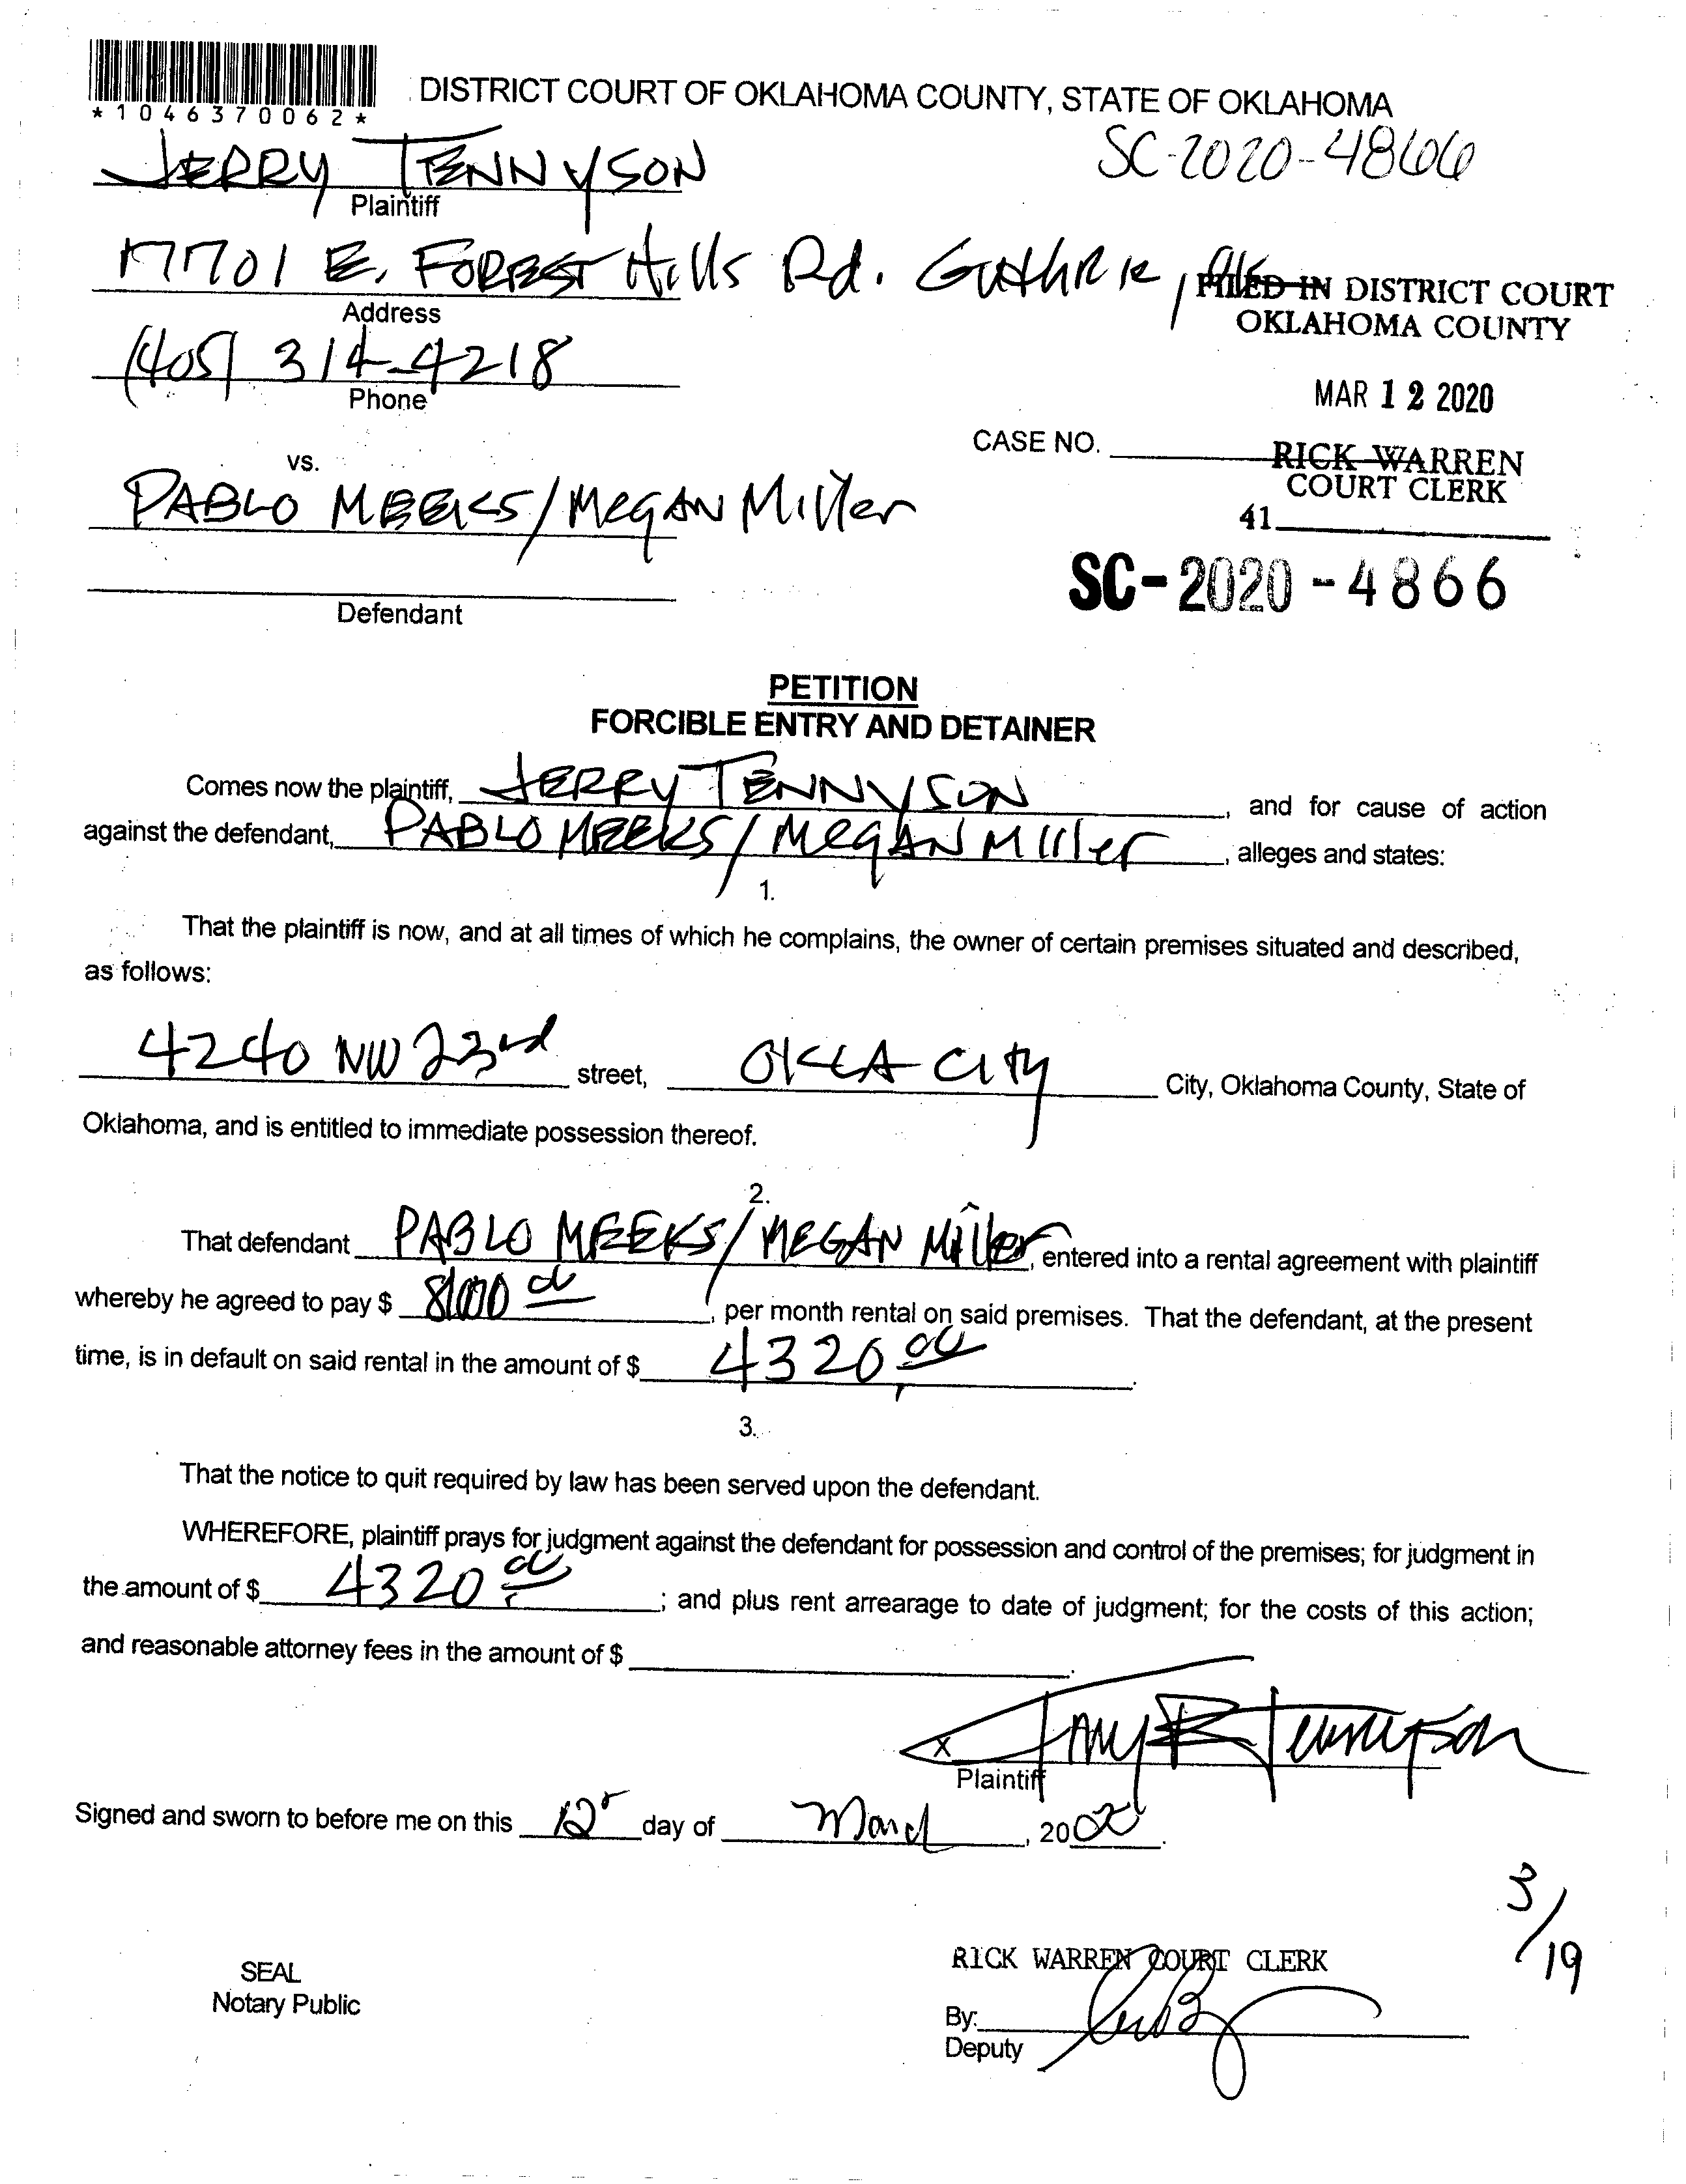 *1046370062*
DISTRICT COURT OF OKLAHOMA COUNTY, STATE OF OKLAHOMA
SC-2020-4866
JERRY TENNYSON
Plaintiff
17701 E. FOREST Hills Rd. GUTHRIE,
Address
FILED IN DISTRICT COURT
OKLAHOMA COUNTY
(405) 314-4218
Phone
MAR 12 2020
CASE NO.
RICK WARREN
COURT CLERK
41
vs.
PABLO MEEKS/MEGAN Miller
SC-2020-4866
Defendant
PETITION
FORCIBLE ENTRY AND DETAINER
Comes now the plaintiff, JERRY TENNYSON, and for cause of action
against the defendant, PABLO MEEKS/MEGAN Miller, alleges and states:
1.
That the plaintiff is now, and at all times of which he complains, the owner of certain premises situated and described,
as follows:
4240 NW 23rd street, OKLA CITY City, Oklahoma County, State of
Oklahoma, and is entitled to immediate possession thereof.
2.
That defendant PABLO MEEKS/MEGAN Miller, entered into a rental agreement with plaintiff
whereby he agreed to pay $, per month rental on said premises. That the defendant, at the present
time, is in default on said rental in the amount of $ 4320 00.
3.
That the notice to quit required by law has been served upon the defendant.
WHEREFORE, plaintiff prays for judgment against the defendant for possession and control of the premises; for judgment in
the amount of $ 4320 00; and plus rent arrearage to date of judgment; for the costs of this action;
and reasonable attorney fees in the amount of $.
X Jerry R Tennyson
Plaintiff
Signed and sworn to before me on this 12 day of March, 20
3/19
SEAL
Notary Public
RICK WARREN COURT CLERK
By:
Deputy